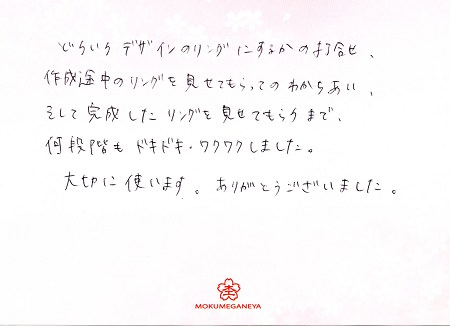 どういう デザインのリングにするかの打合せ、
作成途中のリングを見せてもらってのわかちあい、
そして完成したリングを見せてもらうまで、
何段階もドキドキ・ワクワクしました。
大切に使います。ありがとうございました。
MOKUMEGANEYA